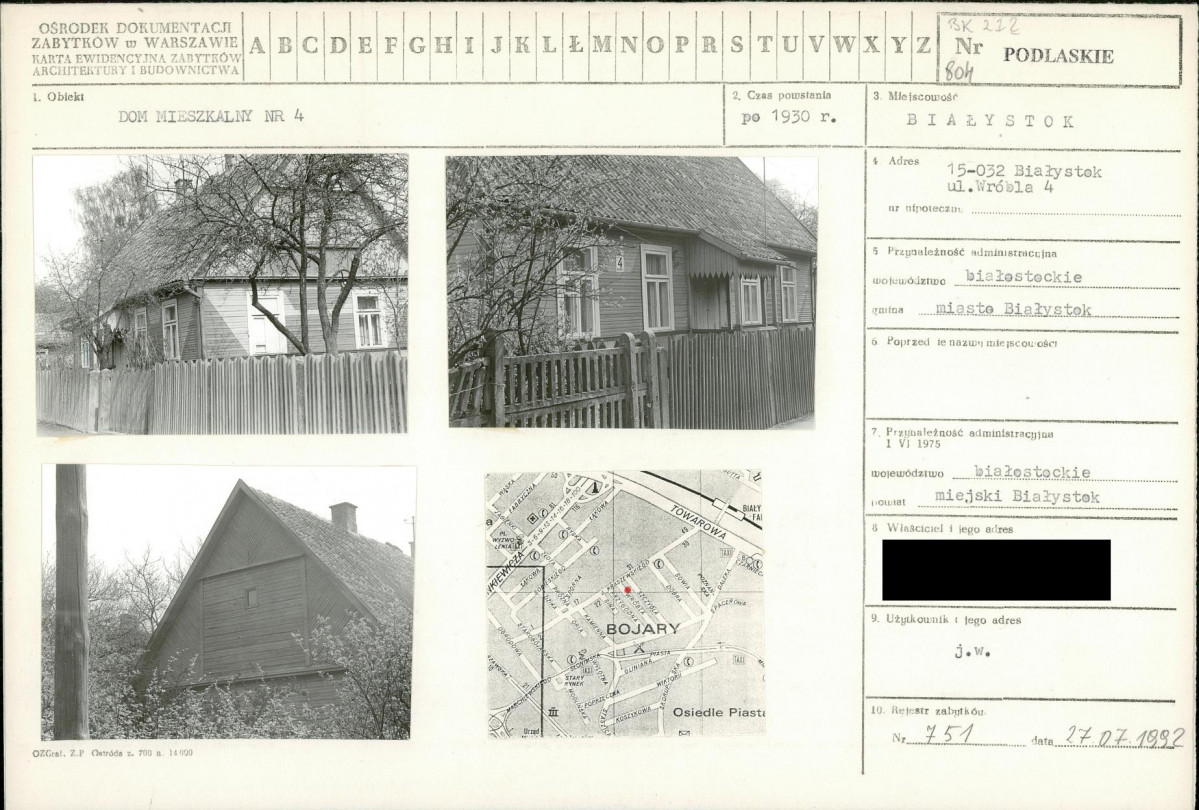 OŚRODEK DOKUMENTACJI
ZABYTKÓW w WARSZAWIE
KARTA EWIDENCYJNA ZABYTKÓW
ARCHITEKTURY I BUDOWNICTWA
A B C D E F G H I J K L Ł M N O P R S T U V W X Y Z
BK 212
Nr PODLASKIE
804
1. Obiekt
DOM MIESZKALNY NR 4
2. Czas powstania
po 1930 r.
3. Miejscowość
BIAŁYSTOK
4 Adres
15-032 Białystok
ul.Wróbla 4
nr hipoteczny
5 Przynależność administracyjna
województwo białostockie
gmina miasto Białystok
6 Poprzednie nazwy miejscowości
7. Przynależność administracyjna
1 VI 1975
województwo białostockie
powiat miejski Białystok
8 Właściciel i jego adres
9. Użytkownik i jego adres
j.w.
10. Rejestr zabytków
Nr 751 data 27.07.1992
4
WĄSKA
FABRYCZNA
ŁĄKOWA
TOWAROWA
PL.
WYZWO-
LENIA
BOJARY
PIASTA
GLINIANA
WIKTORII
STARY
RYNEK
POPRZECZNA
KOSZYKOWA
SPACEROWA
SOWIA
DOBRA
TAXI
III
Urząd
Osiedle Piasta
OZGraf. Z.P Ostróda z. 700 n. 14 000